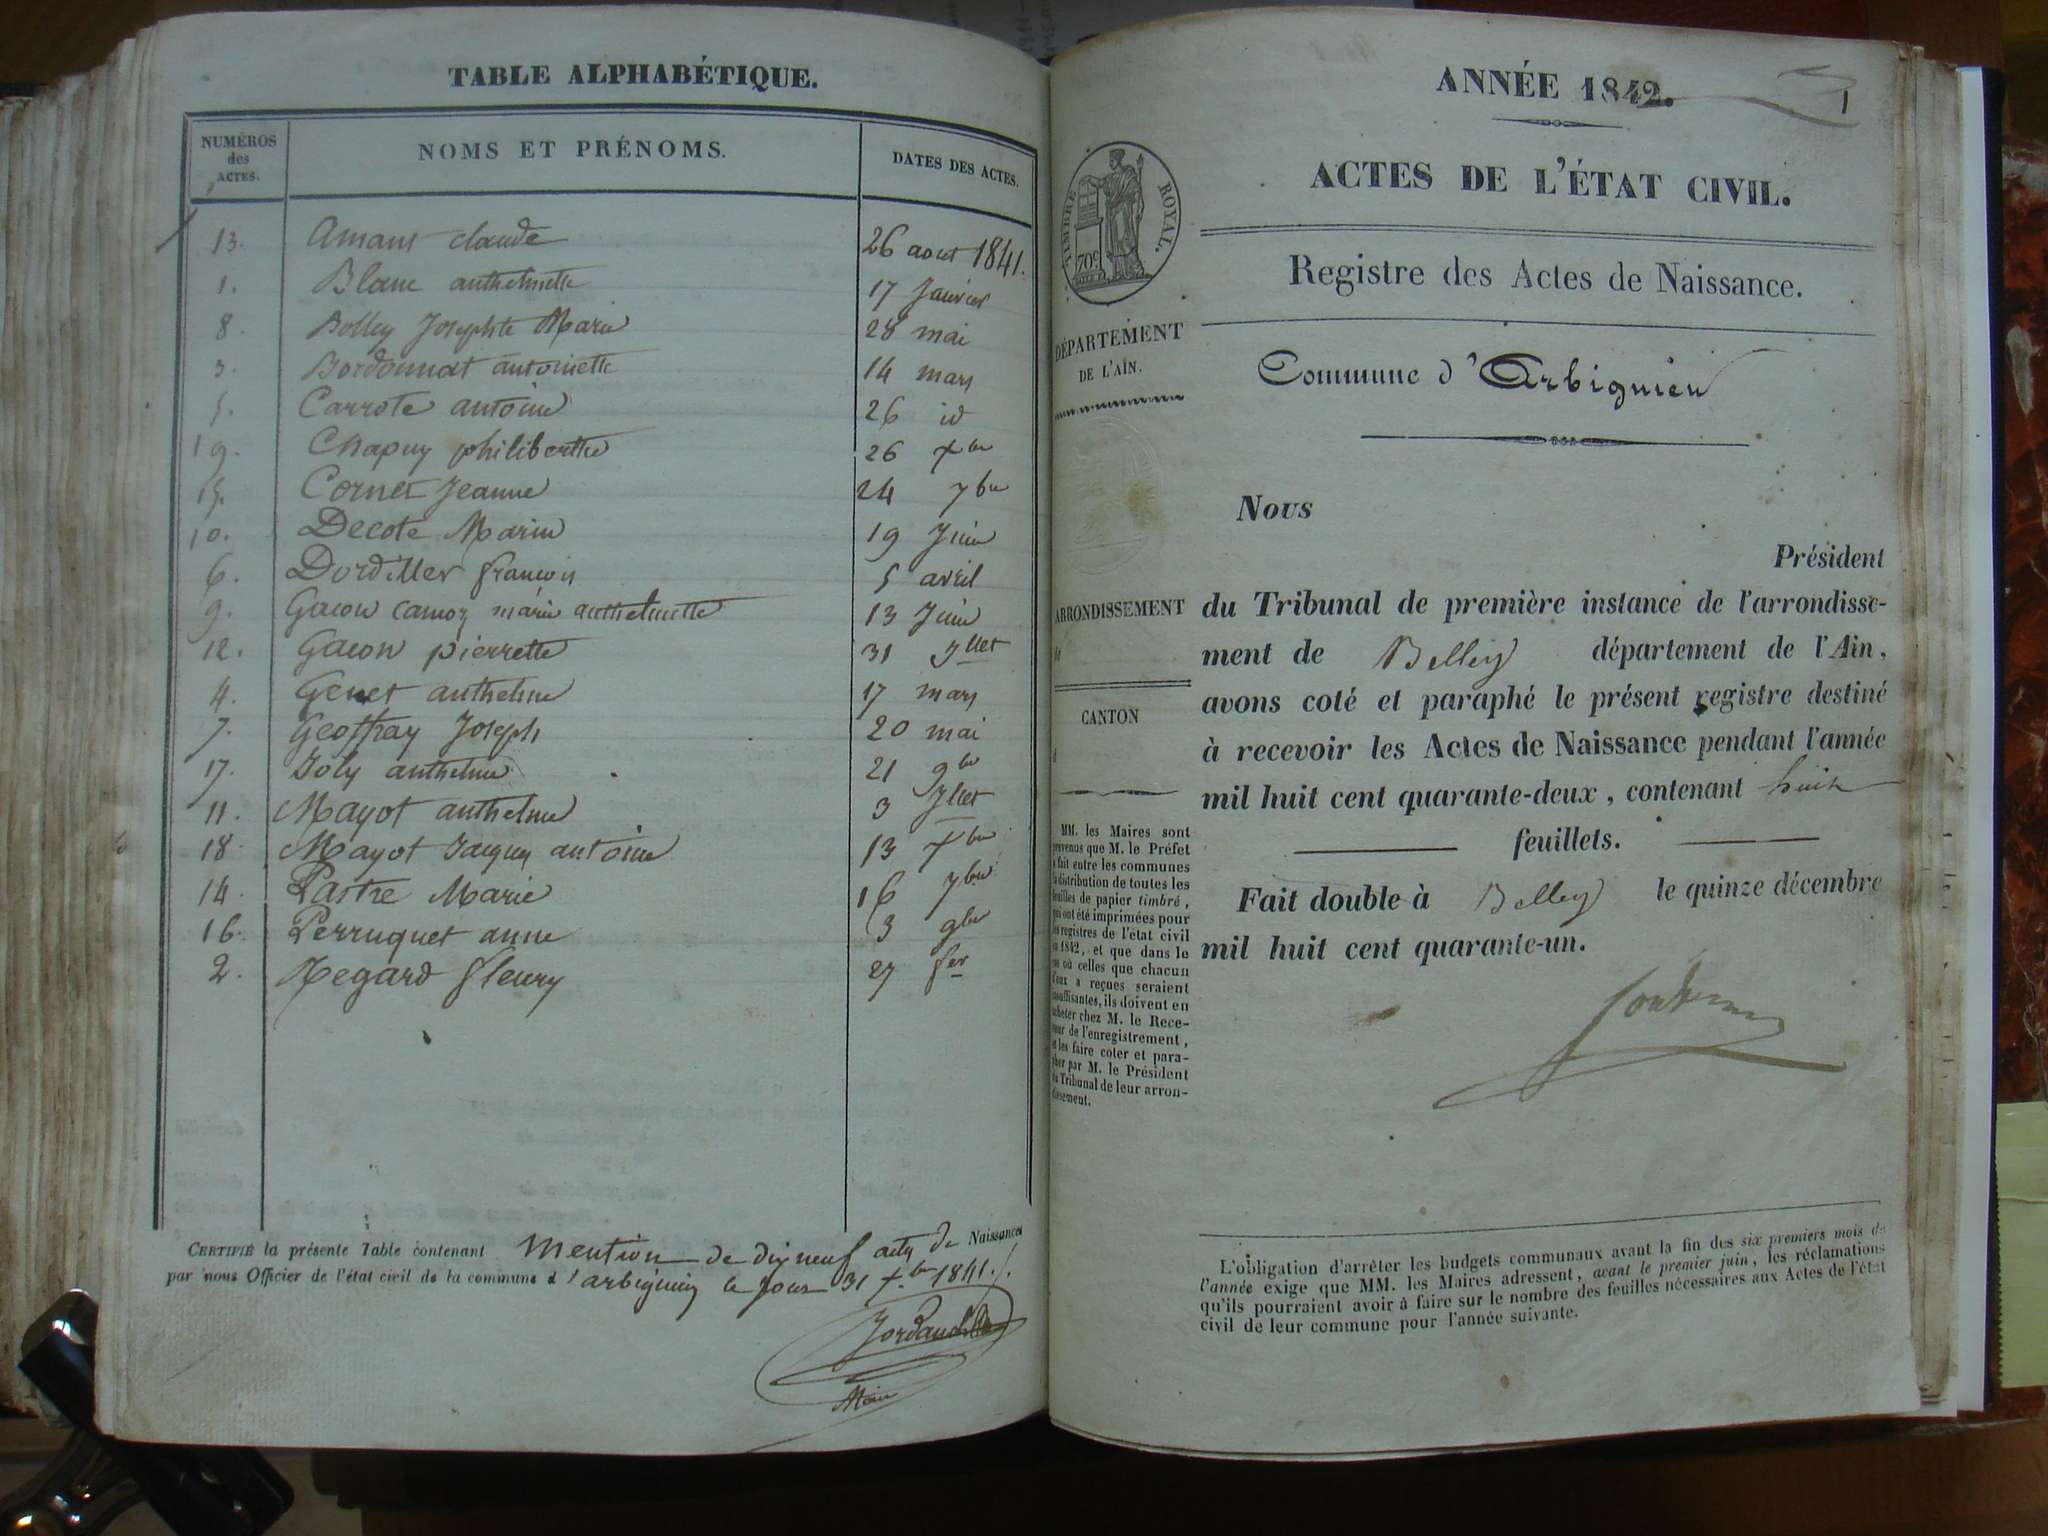 TABLE ALPHABÉTIQUE.
NUMÉROS des ACTES. NOMS ET PRÉNOMS. DATES DES ACTES.
13. Amant claude 26 aout 1841.
1. Blanc anthelmette 17 Janvier
8. Bolley Josephte Marie 28 mai
3. Bordonnat antoinette 14 mars
5. Carrote antoine 26 id
19. Chapuy philiberthe 26 xbre
15. Cornet Jeanne 24 7bre
10. Decote Marie 19 Juin
6. Dordiller francois 5 avril
9. Gacon camoz marie anthelmette 13 Juin
12. Gacon pierrette 31 Jllet
4. Genet anthelme 17 mars
7. Geoffray Joseph 20 mai
17. Joly anthelme 21 9bre
11. Mayot anthelme 3 Jllet
18. Mayot Jacques antoine 13 xbre
14. Pastre Marie 16 7bre
16. Perruquet anne 3 9bre
2. Regard fleury 27 fer
CERTIFIÉ la présente Table contenant mention de dix neuf actes de Naissances
par nous Officier de l'état civil de la commune d'arbignieu ce jour 31 xbre 1841.
Maire
ANNÉE 1842.
1
ACTES DE L'ÉTAT CIVIL.
TIMBRE ROYAL.
70c
Registre des Actes de Naissance.
DÉPARTEMENT
DE L'AIN.
Commune d'Arbignieu
Nous
Président
ARRONDISSEMENT
du Tribunal de première instance de l'arrondisse-
ment de Belley département de l'Ain,
avons coté et paraphé le présent registre destiné
CANTON
à recevoir les Actes de Naissance pendant l'année
mil huit cent quarante-deux, contenant huit
feuillets.
Fait double à Belley le quinze décembre
mil huit cent quarante-un.
MM. les Maires sont
prévenus que M. le Préfet
a fait entre les communes
la distribution de toutes les
feuilles de papier timbré,
qui ont été imprimées pour
les registres de l'état civil
en 1842, et que dans le
cas où celles que chacun
d'eux a reçues seraient
insuffisantes, ils doivent en
acheter chez M. le Rece-
veur de l'enregistrement,
et les faire coter et para-
pher par M. le Président
du Tribunal de leur arron-
dissement.
L'obligation d'arrêter les budgets communaux avant la fin des six premiers mois de
l'année exige que MM. les Maires adressent, avant le premier juin, les réclamations
qu'ils pourraient avoir à faire sur le nombre des feuilles nécessaires aux Actes de l'état
civil de leur commune pour l'année suivante.